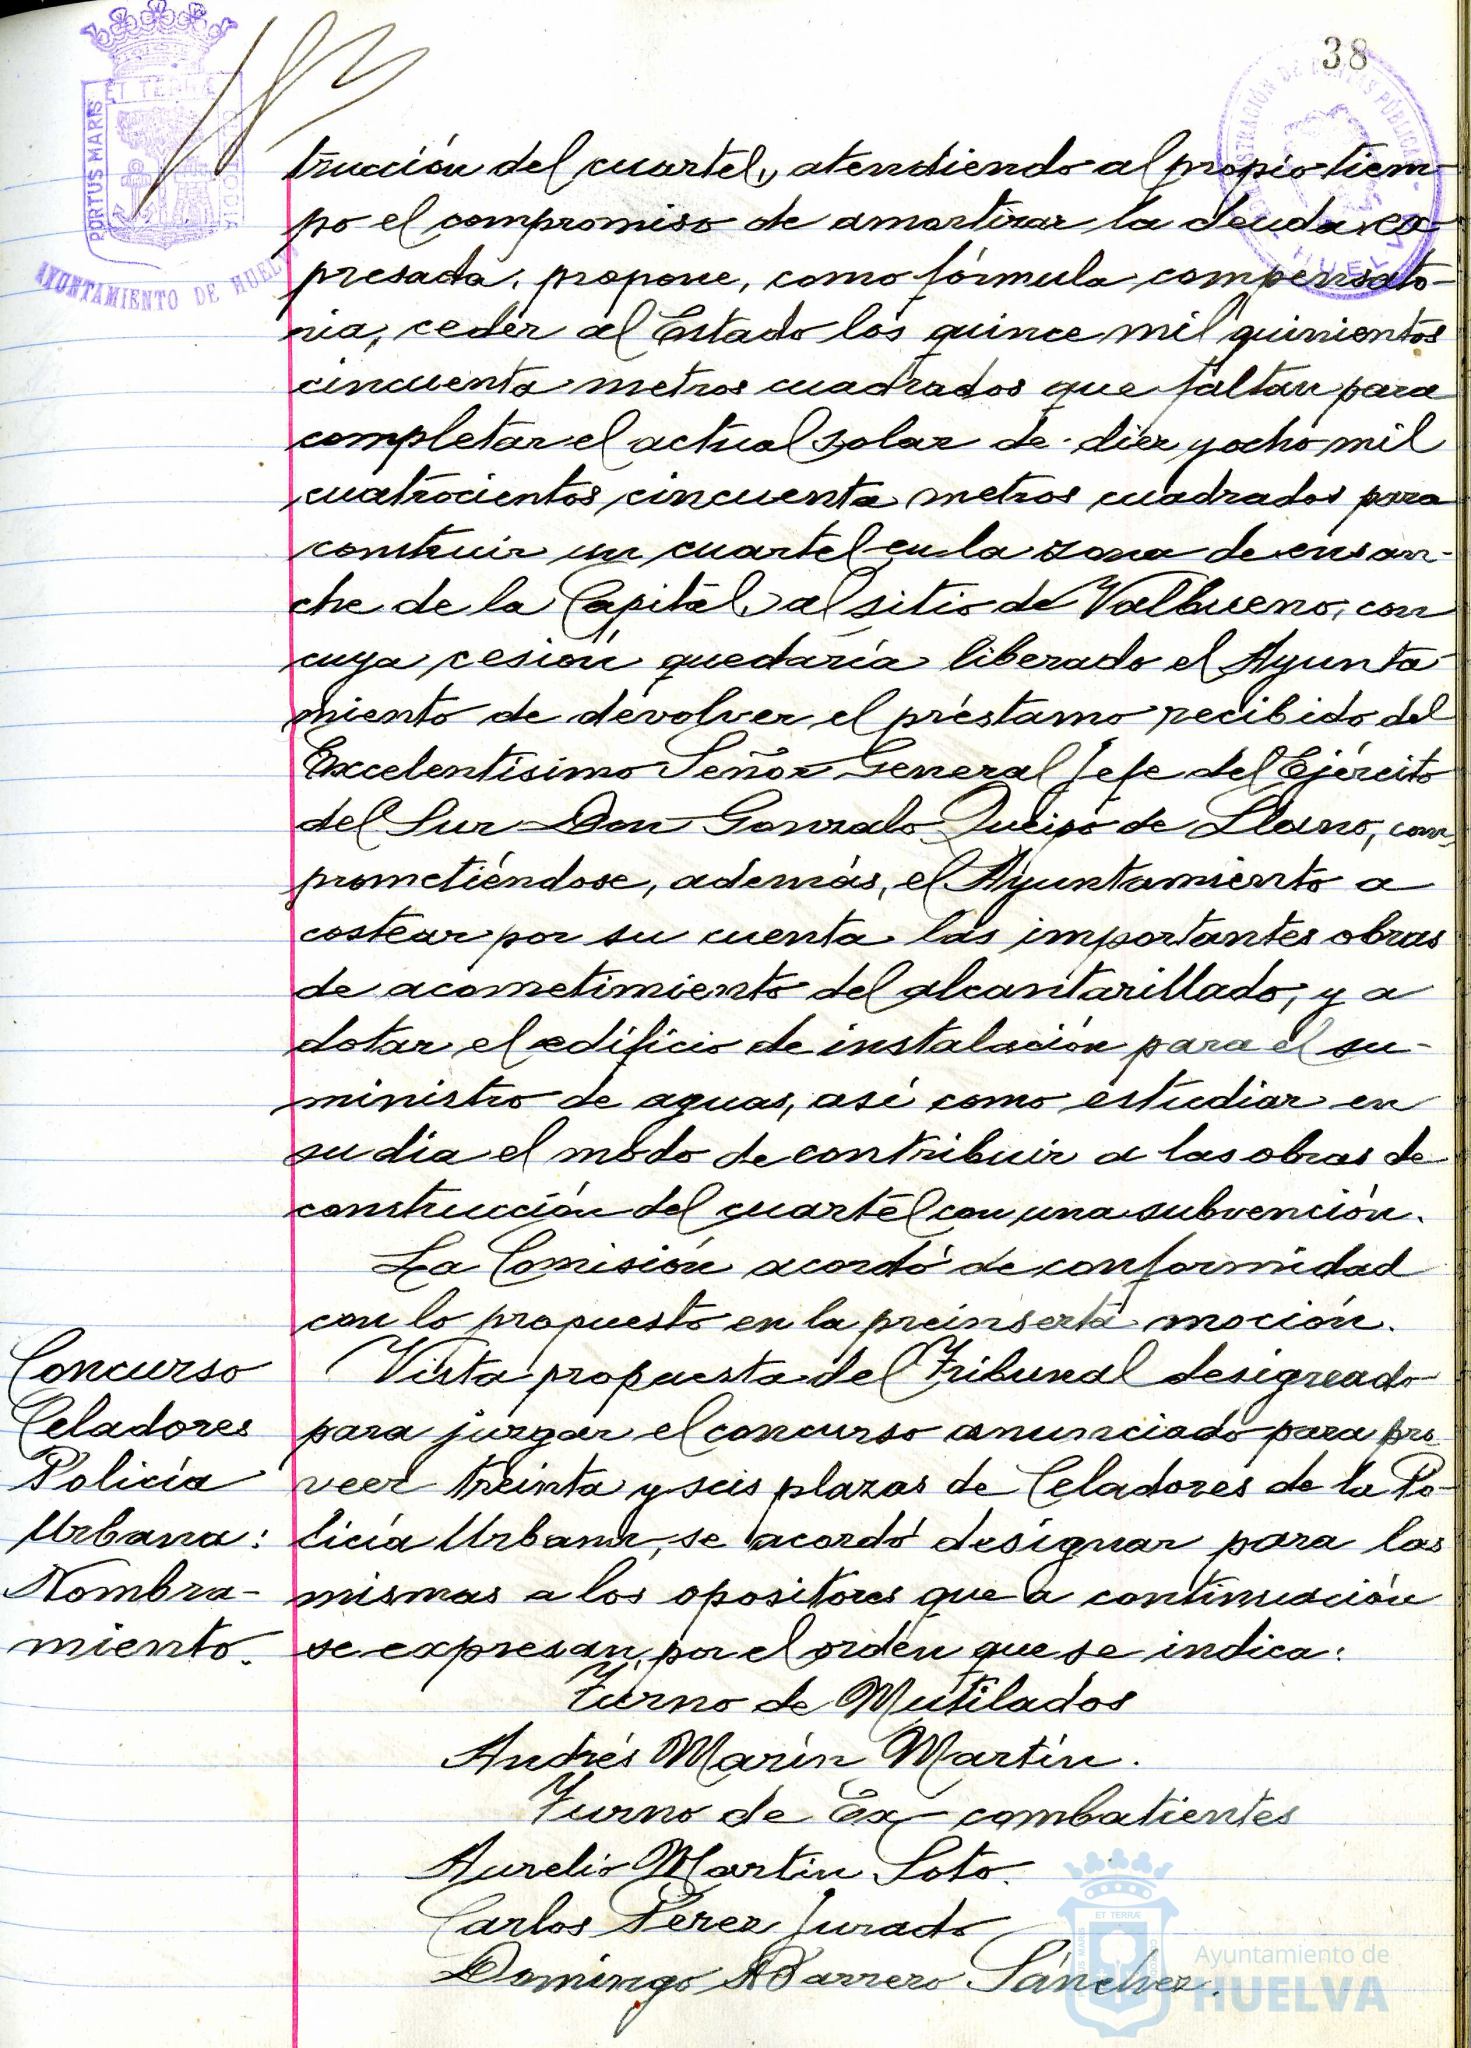 38
PORTUS MARIS
ET TERRÆ
CUSTODIA
AYUNTAMIENTO DE HUELVA
HUELVA
trucción del cuartel, atendiendo al propio tiem-
po el compromiso de amortizar la deuda ex-
presada, propone, como fórmula compensato-
ria, ceder al Estado los quince mil quinientos
cincuenta metros cuadrados que faltan para
completar el actual solar de diez y ocho mil
cuatrocientos cincuenta metros cuadrados para
construir un cuartel en la zona de ensan-
che de la Capital, al sitio de Valbueno, con
cuya cesión quedaría liberado el Ayunta-
miento de devolver el préstamo recibido del
Excelentísimo Señor General Jefe del Ejército
del Sur Don Gonzalo Queipo de Llano, com-
prometiéndose, además, el Ayuntamiento a
costear por su cuenta las importantes obras
de acometimiento del alcantarillado, y a
dotar el edificio de instalación para el su-
ministro de aguas, así como estudiar en
su dia el modo de contribuir a las obras de
construcción del cuartel con una subvención.
La Comisión acordó de conformidad
con lo propuesto en la preinserta moción.
Concurso
Celadores
Policía
Urbana:
Nombra-
miento.
Vista propuesta del Tribunal designado
para juzgar el concurso anunciado para pro-
veer treinta y seis plazas de Celadores de la Po-
licía Urbana, se acordó designar para las
mismas a los opositores que a continuación
se expresan, por el orden que se indica:
Turno de Mutilados
Andrés Marín Martín.
Turno de Ex-combatientes
Aurelio Martín Soto.
Carlos Pérez Jurado
Domingo Barrero Sánchez.
Ayuntamiento de
HUELVA